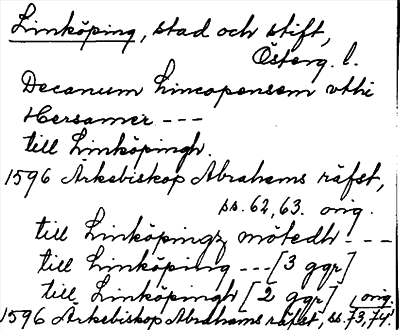 Linköping, stad och stift,
Österg. l.
Decanum Lincopensem vthi
Hersamer ---
till Linköpingh.
1596 Ärkebiskop Abrahams räfst,
ss. 62, 63. orig.
till Linköpingz mötedh ---
till Linköping --- [3 ggr]
till Linköpingh [2 ggr] orig.
1596 Ärkebiskop Abrahams räfst, ss. 73, 74.